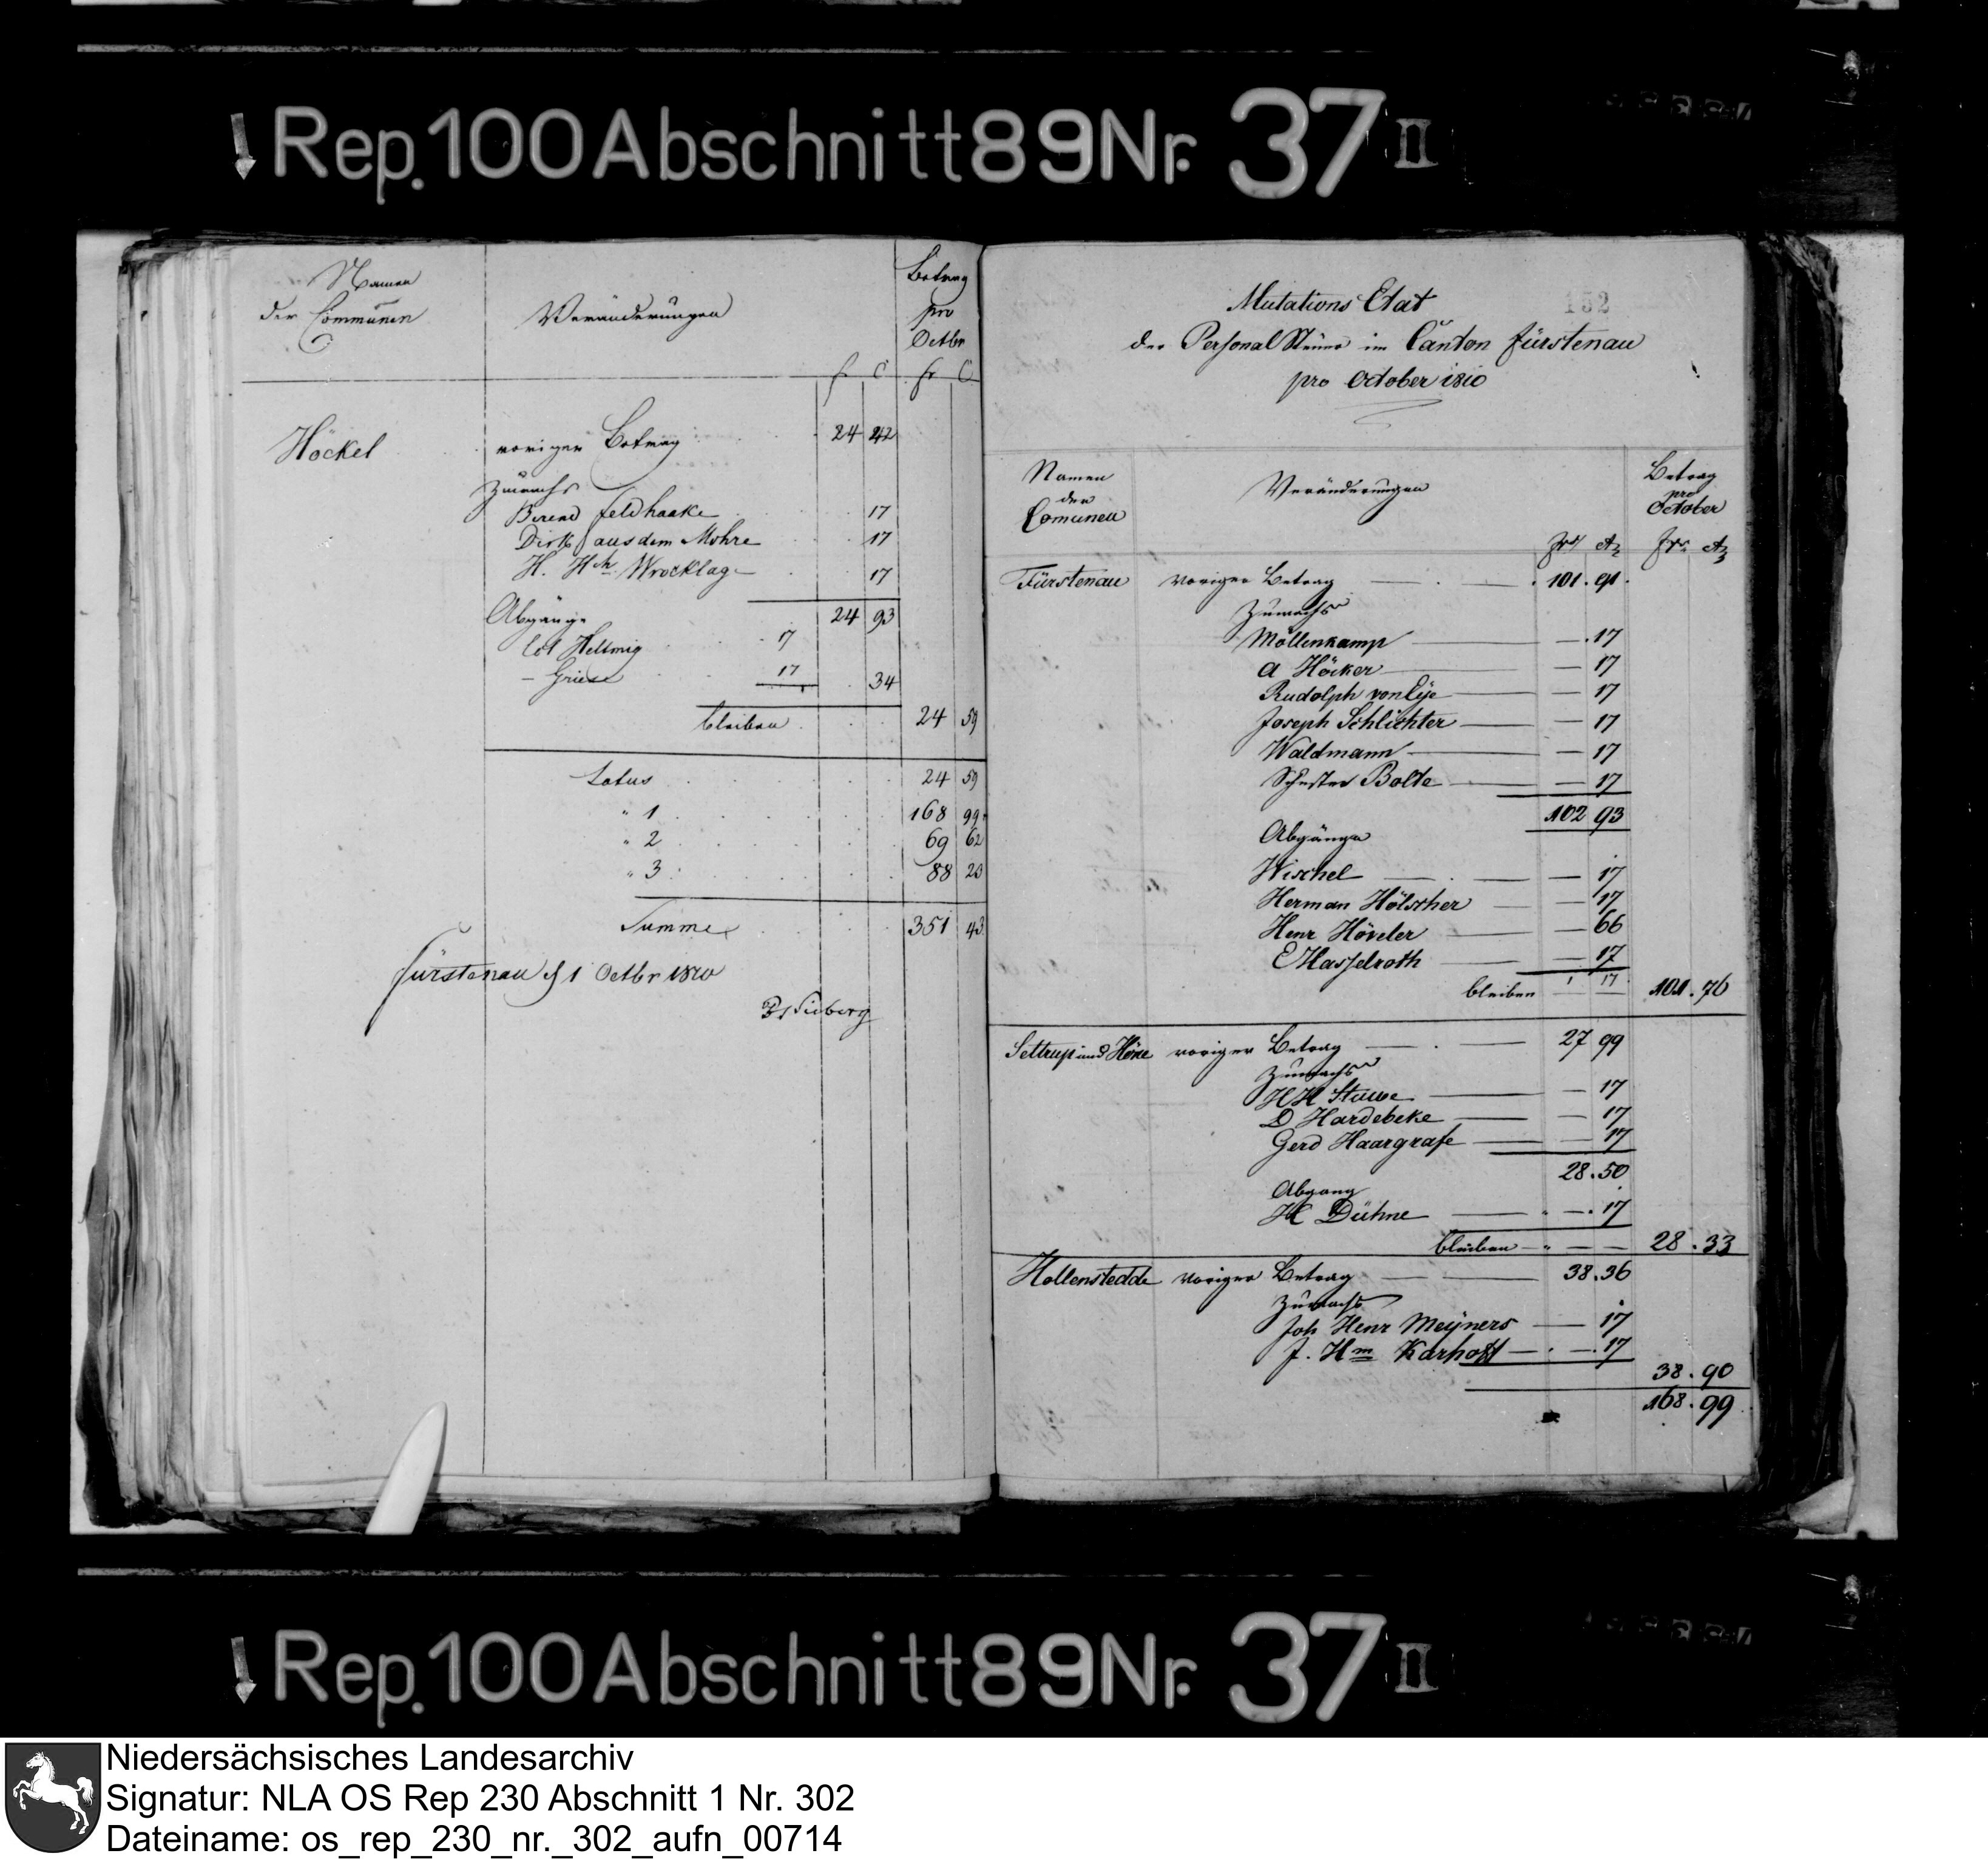 Rep.100Abschnitt89Nr. 37 II
Namen
der Communen
Veränderungen
Betrag
pro
Octbr
fr C fr C
Höckel voriger Betrag 24 42
Zuwachs
Berend Feldhaake 17
Dirk aus dem Mohre 17
H. Hch. Wrocklage 17
24 93
Abgänge
Col Hellmig 17
– Griese 17 34
bleiben 24 59
Latus 24 59
" 1 168 99
" 2 69 62
" 3 88 23
Summe 351 43
Fürstenau d 1 Octbr 1810
Sieberg
152
Mutations Etat
der Personal Steuer im Canton Fürstenau
pro October 1810
Namen
der
Comunen
Veränderungen
Betrag
pro
October
frs Ct frs Ct
Fürstenau voriger Betrag 101. 91.
Zuwachs
Möllenkamp — 17
A Höcker — 17
Rudolph von Eye — 17
Joseph Schlichter — 17
Waldmann — 17
Schuster Bolte — 17
102 93
Abgänge
Wischel — 17
Herman Hölscher — 17
Henr Höveler — 66
E Hasselroth — 17
1 17
bleiben 101. 76
Settrup und Höne voriger Betrag 27 99
Zuwachs
HH Stuwe — 17
D Hardebeke — 17
Gerd Haargrafe — 17
28. 50
Abgang
H Dühne — 17
bleiben 28. 33
Hollenstedde voriger Betrag 38. 36
Zuwachs
Joh Henr Meyners — 17
J. Hm Karhoff — 17
38. 90
168. 99
Rep.100Abschnitt89Nr. 37 II
Niedersächsisches Landesarchiv
Signatur: NLA OS Rep 230 Abschnitt 1 Nr. 302
Dateiname: os_rep_230_nr._302_aufn_00714